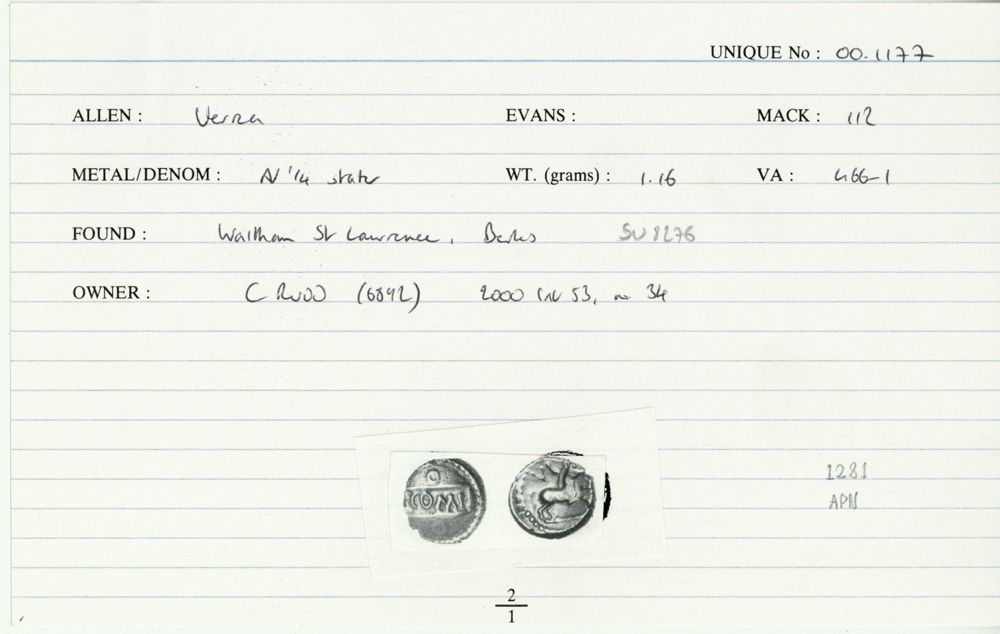 UNIQUE No : 00.1177
ALLEN : Verica EVANS : MACK : 112
METAL/DENOM : AV 1/4 stater WT. (grams) : 1.16 VA : 466-1
FOUND : Waltham St Lawrence, Berks SU 8276
OWNER : C RUDD (6892) 2000 list 53, no 34
COMM
1281
APN
2
1